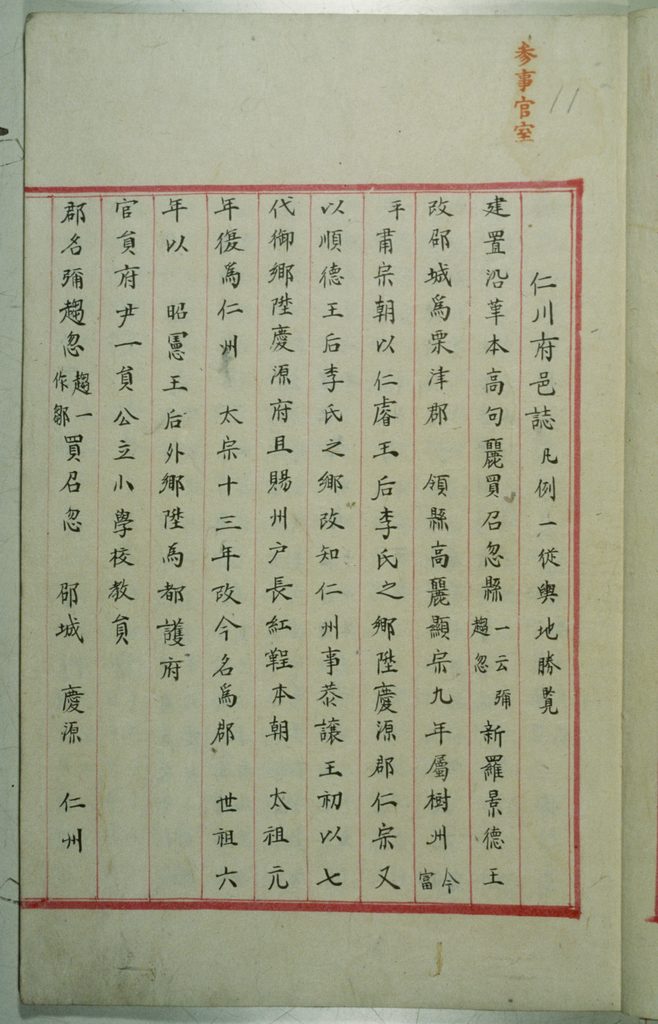 参事官室
11
仁川府邑誌 凡例一從輿地勝覽
建置沿革本高句麗買召忽縣 一云彌趨忽 新羅景德王
改邵城爲栗津郡 領縣高麗顯宗九年屬樹州 今富
平 肅宗朝以仁睿王后李氏之鄉陞慶源郡仁宗又
以順德王后李氏之鄉改知仁州事恭讓王初以七
代御鄉陞慶源府且賜州户長紅鞓本朝 太祖元
年復爲仁州 太宗十三年改今名爲郡 世祖六
年以 昭憲王后外鄉陞爲都護府
官員府尹一員公立小學校教員
郡名彌趨忽 趨一作鄒 買召忽 邵城 慶源 仁州